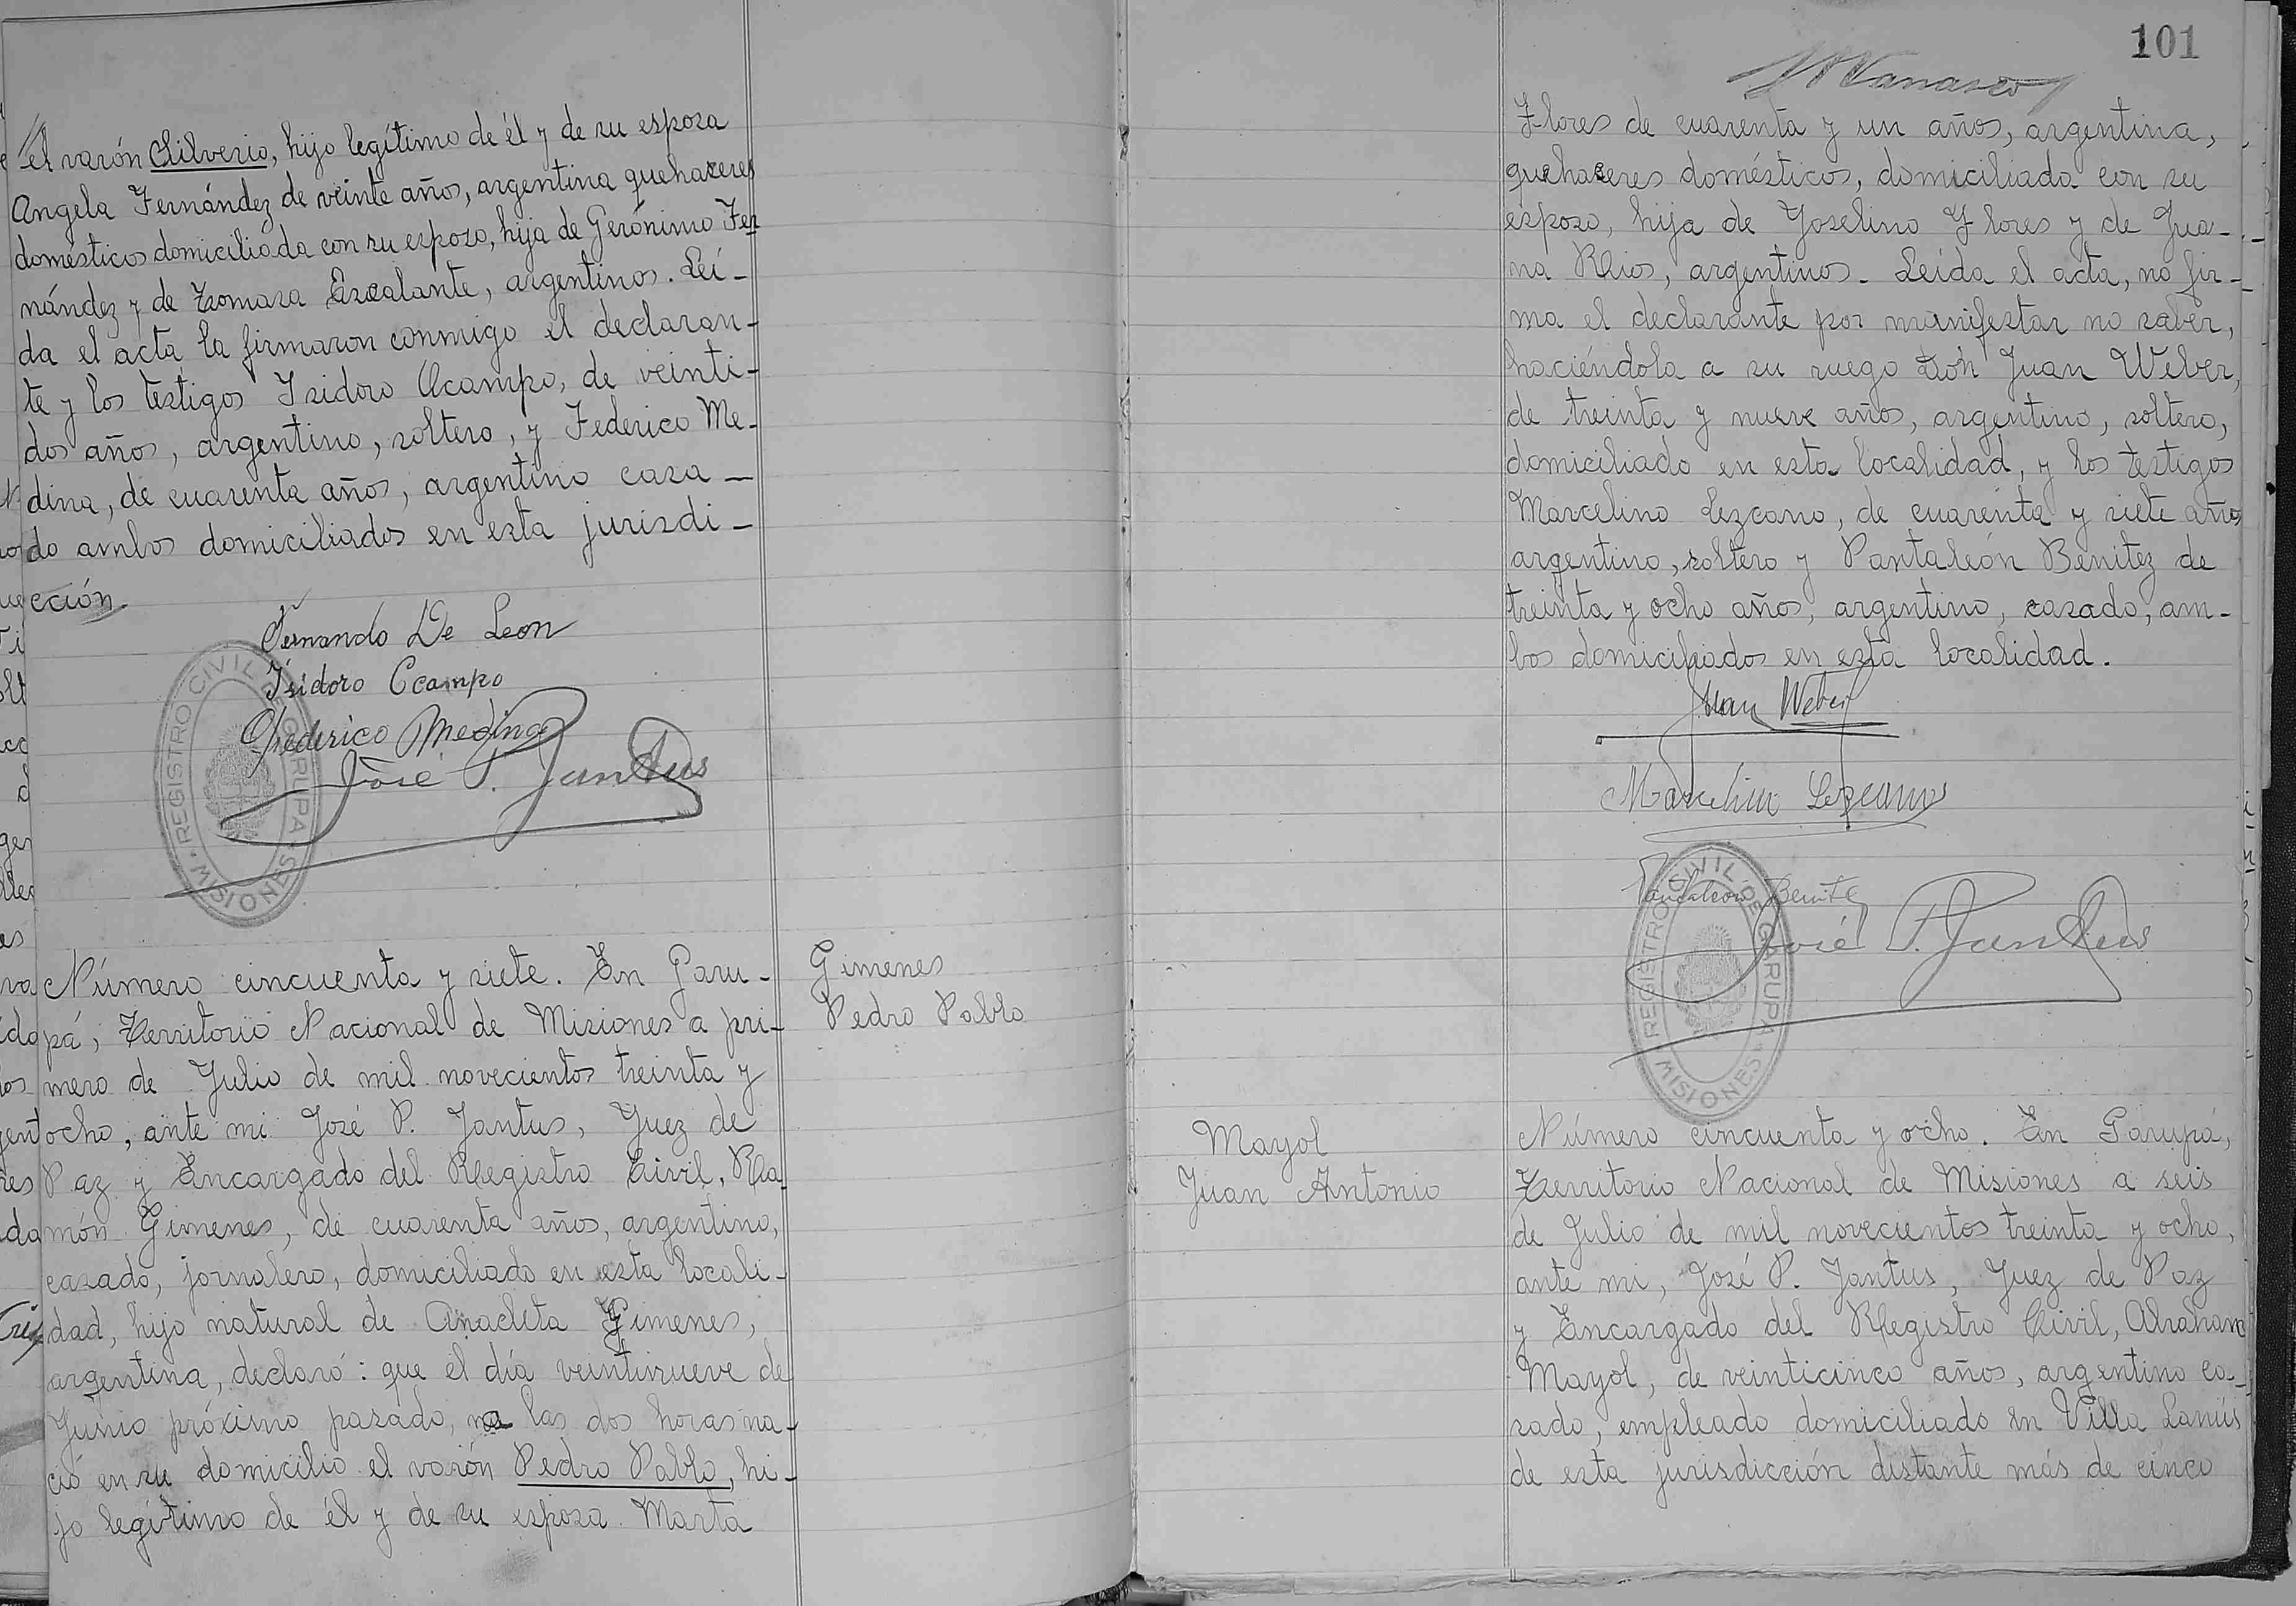 el varón Silverio, hijo legítimo de él y de su esposa
Angela Fernández de veinte años, argentina quehaceres
domésticos domiciliada con su esposo, hija de Gerónimo Fer
nández y de Tomasa Escalante, argentinos. Leí-
da el acta la firmaron conmigo el declaran-
te y los testigos Isidoro Ocampo, de veinti-
dos años, argentino, soltero, y Federico Me-
dina, de cuarenta años, argentino casa-
do ambos domiciliados en esta jurisdi-
cción.
Fernando De Leon
Isidoro Ocampo
Frederico Medina
José P. Jantus
REGISTRO CIVIL DE GARUPA
MISIONES
Número cincuenta y siete. En Garu-
pá, Territorio Nacional de Misiones a pri-
mero de Julio de mil novecientos treinta y
ocho, ante mi José P. Jantus, Juez de
Paz y Encargado del Registro Civil, Ra-
món Gimenes, de cuarenta años, argentino,
casado, jornalero, domiciliado en esta locali-
dad, hijo natural de Anacleta Gimenes,
argentina, declaró: que el día veintinueve de
Junio próximo pasado, a las dos horas na-
ció en su domicilio el varón Pedro Pablo, hi-
jo legítimo de él y de su esposa Marta
Gimenes
Pedro Pablo
101
Flores de cuarenta y un años, argentina,
quehaceres domésticos, domiciliada con su
esposo, hija de Joselino Flores y de Jua-
na Rios, argentinos. Leída el acta, no fir-
ma el declarante por manifestar no saber,
haciéndola a su ruego don Juan Weber,
de treinta y nueve años, argentino, soltero,
domiciliado en esta localidad, y los testigos
Marcelino Lezcano, de cuarenta y siete años
argentino, soltero y Pantaleón Benitez de
treinta y ocho años, argentino, casado, am-
bos domiciliados en esta localidad.
Juan Weber
Marcelino Lezcano
Pantaleon Benite
José P. Jantus
REGISTRO CIVIL DE GARUPA
MISIONES
Mayol
Juan Antonio
Número cincuenta y ocho. En Garupá,
Territorio Nacional de Misiones a seis
de Julio de mil novecientos treinta y ocho,
ante mi, José P. Jantus, Juez de Paz
y Encargado del Registro Civil, Abraham
Mayol, de veinticinco años, argentino ca-
sado, empleado domiciliado en Villa Lanús
de esta jurisdicción distante más de cinco